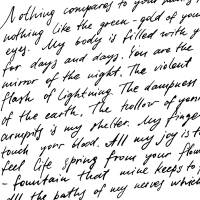 Nothing compares to your hands
nothing like the green-gold of your
eyes. My body is filled with y
for days and days. You are the
mirror of the night. The violent
flash of lightning. The dampness
of the earth. The hollow of your
armpits is my shelter. My finge
touch your blood. All my joy is t
feel life spring from your flow
-fountain that mine keeps to
all the paths of my nerves which